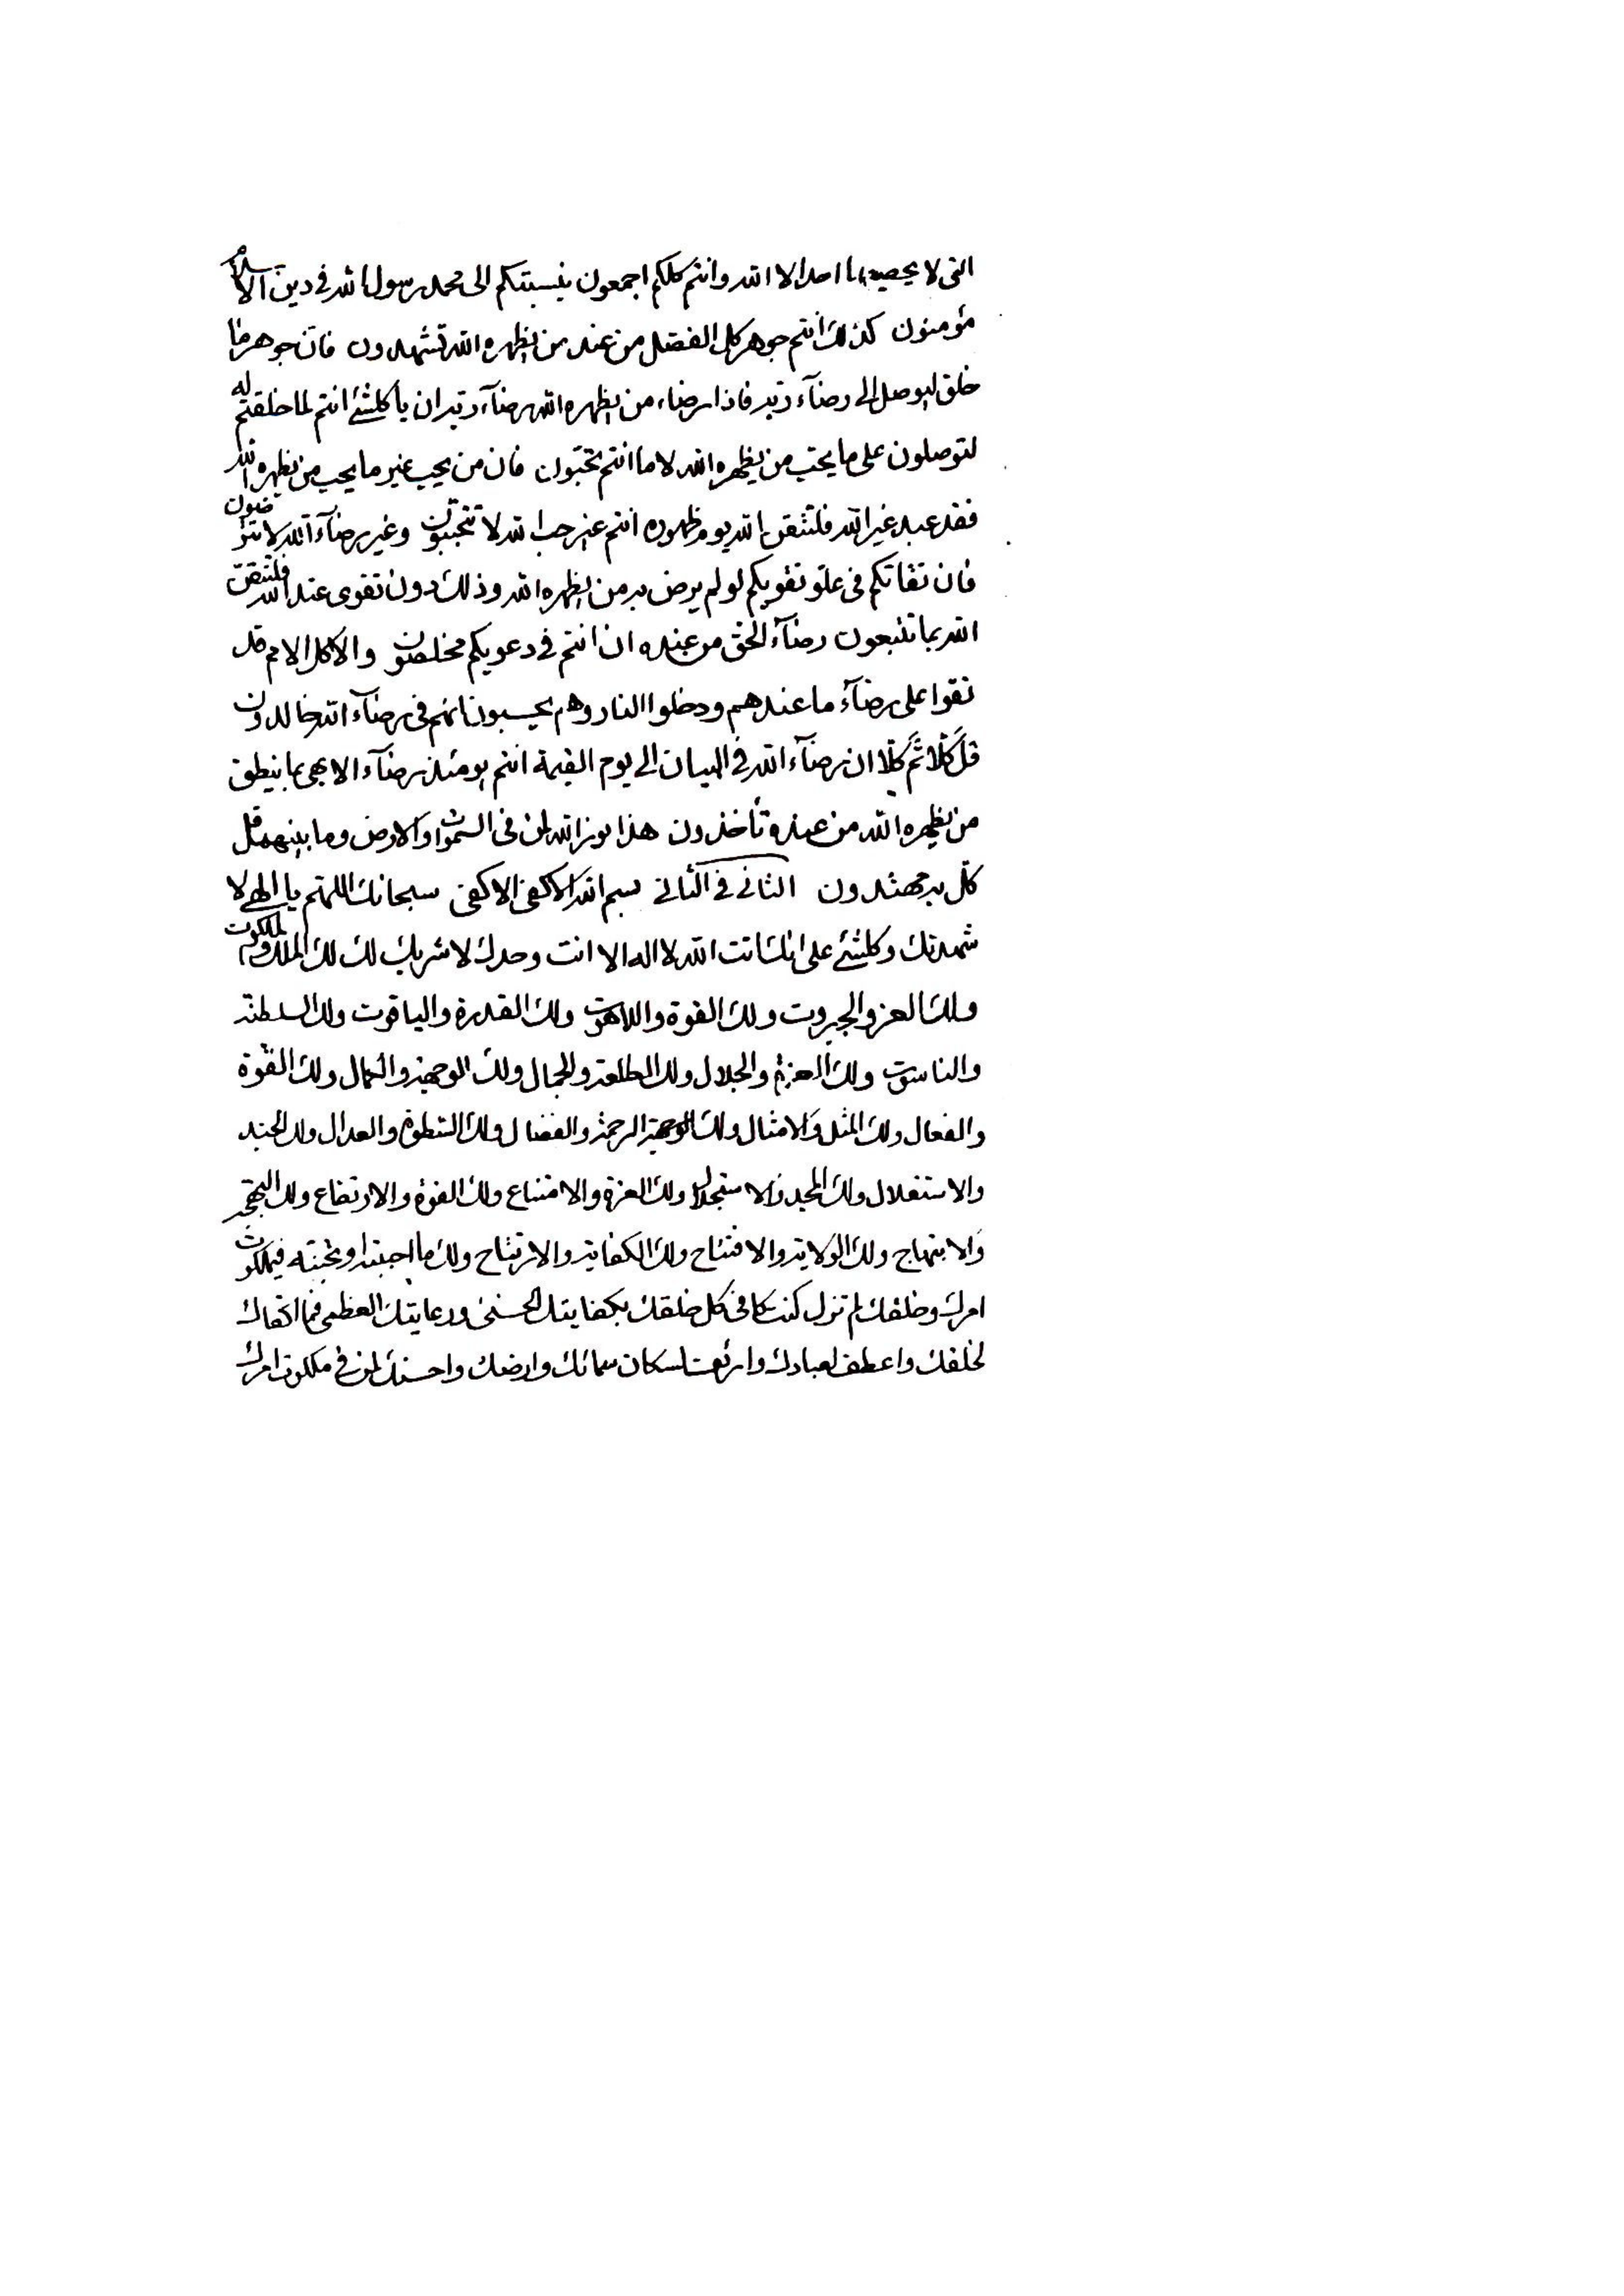 التى لا يحصيها احدا الا الله وانتم كلكم اجمعون بنسبتكم الى محمد رسول الله فى دين الاسلام
مؤمنون كذلك انتم جوهر كل الفضل من عند من يظهره الله تشهدون فان جوهر ما
خلق ليوصل الى رضآء ربه فاذا رضاء من يظهره الله رضآء ربه ان يا كلشئ انتم لما خلقتم له
لتوصلون على ما يحب من يظهره الله لا ما انتم تحبون فان من يحب غير ما يحب من يظهره الله
فقد عبد غير الله فلتتقن الله يوم ظهوره انتم غير حب الله لا تحبون وغير رضآء الله لا ترضون
فان تقاتكم فى علو تقويكم لو لم يرض به من يظهره الله وذلك دون تقوى عند الله فلتتقن
الله بما تتبعون رضآء الحق من عنده ان انتم فى دعويكم مخلصون والا كل الامم قد
بقوا على رضآء ما عندهم ودخلوا النار وهم يحسبون انهم فى رضآء الله خالدون
قل كلا ثم كلا ان رضآء الله فى البيان الى يوم القيمة انتم يومئذ رضآء الابهى بما ينطق
من يظهره الله من عنده تأخذون هذا نور الله لمن فى السموات والارض وما بينهما قل
كل به مهتدون الثانى فى الثانى بسم الله الاكفى الاكفى سبحانك اللهم يا الهى لا
شهدنك وكلشئ على انك انت الله لا اله الا انت وحدك لا شريك لك لك الملك والملكوت
ولك العز والجبروت ولك القوة واللاهوت ولك القدرة والياقوت ولك السلطنة
والناسوت ولك العزة والجلال ولك الطلعة والجمال ولك الوجهة والكمال ولك القوة
والفعال ولك المثل والامثال ولك الرحمة والفضال ولك السطوة والعدال ولك
والاستقلال ولك المجد والاستجلال ولك العزة والامتناع ولك القوة والارتفاع ولك البهجة
والابتهاج ولك الولاية والافتتاح ولك الكفاية والارتتاح ولك ما احببته او تحبنه فى ملكوت
امرك وخلقك لم تزل كنت كافى كل خلقك بكفايتك الحسنى ورعايتك العظمى فما اكفاك
لخلقك واعطف لعبادك وارئفت لسكان سمائك وارضك واحسنك لمن فى ملكوت امرك